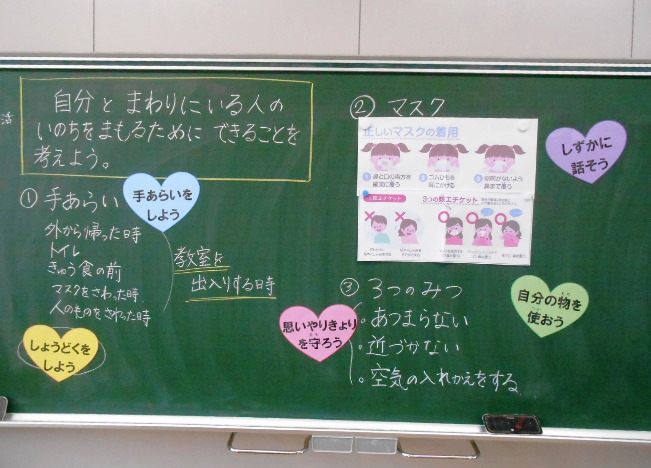 活
自分と まわりにいる人の
いのちをまもるために できることを
考えよう。
① 手あらい
手あらいを
しよう
外から帰った日寺
トイレ
きゅう食の前
マスクをさわった時
人のものをさわった時
教室を
出入りする時
しょうどくを
しよう
② マスク
正しいマスクの着用
1 鼻と口の両方を
確実に覆う
2 ゴムひもを
耳にかける
3 隙間がないよう
鼻まで覆う
3つの咳エチケット
しずかに
話そう
③ 3つのみつ
思いやりきょり
を守ろう
。あつまらない
。近づかない
。空気の入れかえをする
自分の物を
使おう